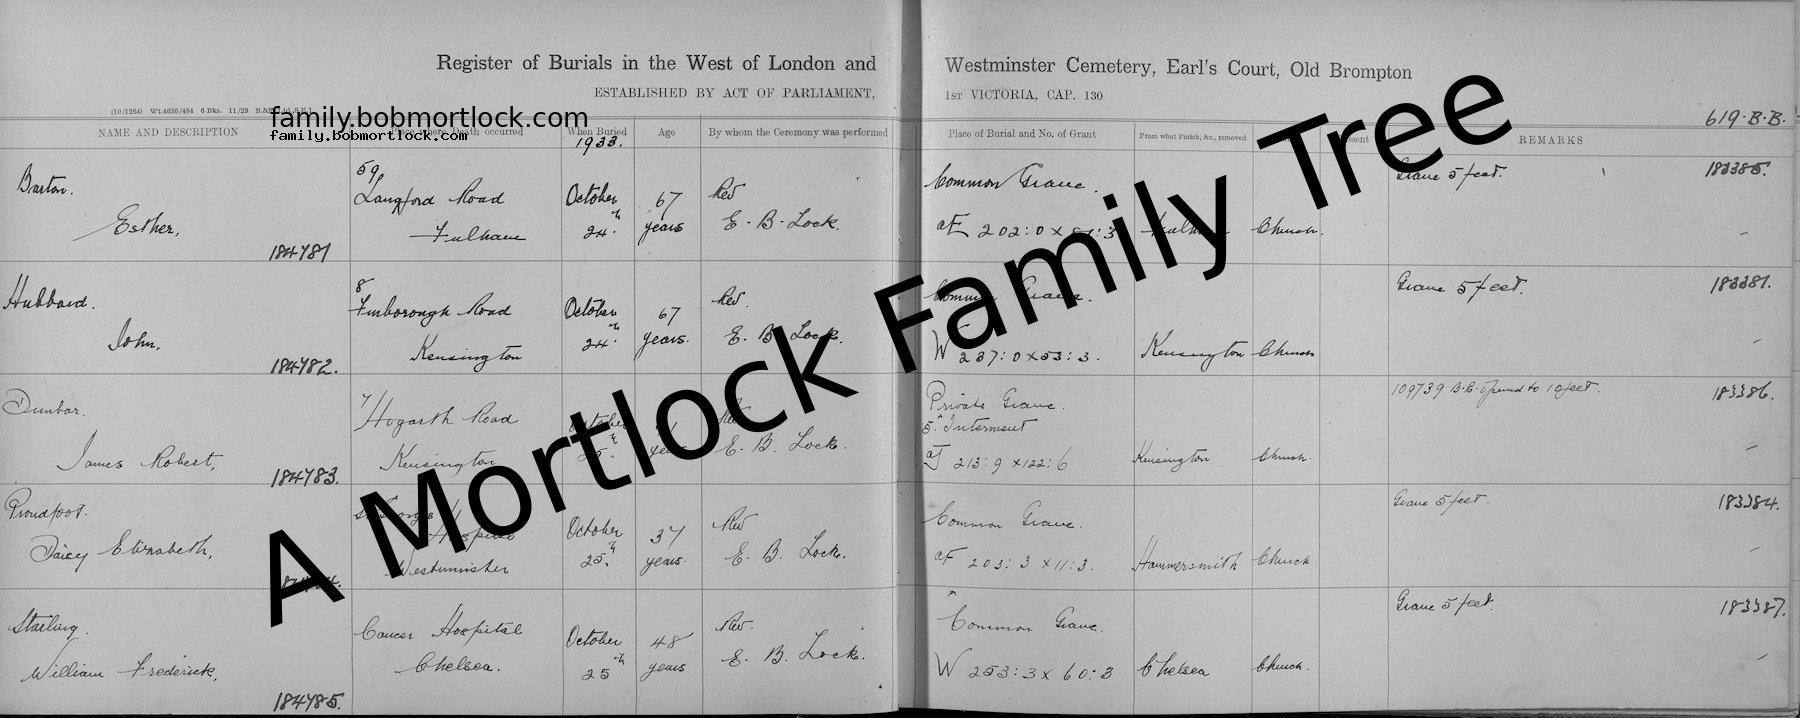 Register of Burials in the West of London and Westminster Cemetery, Earl's Court, Old Brompton
ESTABLISHED BY ACT OF PARLIAMENT, 1ST VICTORIA, CAP. 130
(10/1264) Wt.4636/484 6 Bks. 11/29
family.bobmortlock.com
family.bobmortlock.com
619.B.B.
NAME AND DESCRIPTION Place where Death occurred When Buried Age By whom the Ceremony was performed Place of Burial and No. of Grant From what Parish, &c., removed REMARKS
1933.
Barton.
Esther,
184781
59,
Langford Road
Fulham
October
24th
67
years
Rev
E. B. Lock.
Common Grave.
AF 202:0 x
Church.
Grave 5 feet.
183385.
Hubbard.
John,
184782.
8
Finborough Road
Kensington
October
24th
67
years.
Rev.
E. B. Lock.
Common Grave.
W 237:0 x 53:3.
Kensington
Church
Grave 5 feet.
183381.
Dunbar.
James Robert,
184783.
7
Hogarth Road
Kensington
October
25th
Rev
E. B. Lock.
Private Grave.
5th Interment
213:9 x 122:6
Kensington
Church.
109739 B.C. opened to 10 feet.
183386.
Proudfoot.
Daisy Elizabeth,
St. George's
Hospital
Westminster
October
25th
37
years.
Rev
E. B. Lock.
Common Grave.
AF 203:3 x 11:3.
Hammersmith
Church
Grave 5 feet.
183384.
Starling.
William Frederick,
184785.
Cancer Hospital
Chelsea.
October
25th
48
years
Rev.
E. B. Lock.
Common Grave.
W 253:3 x 60:3
Chelsea
Church.
Grave 5 feet.
183387.
A Mortlock Family Tree